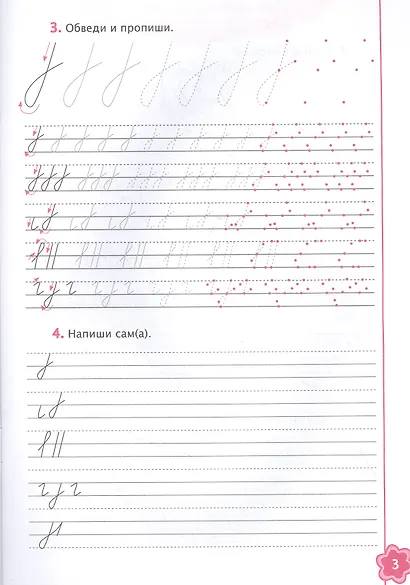 3. Обведи и пропиши.
4. Напиши сам(а).
3